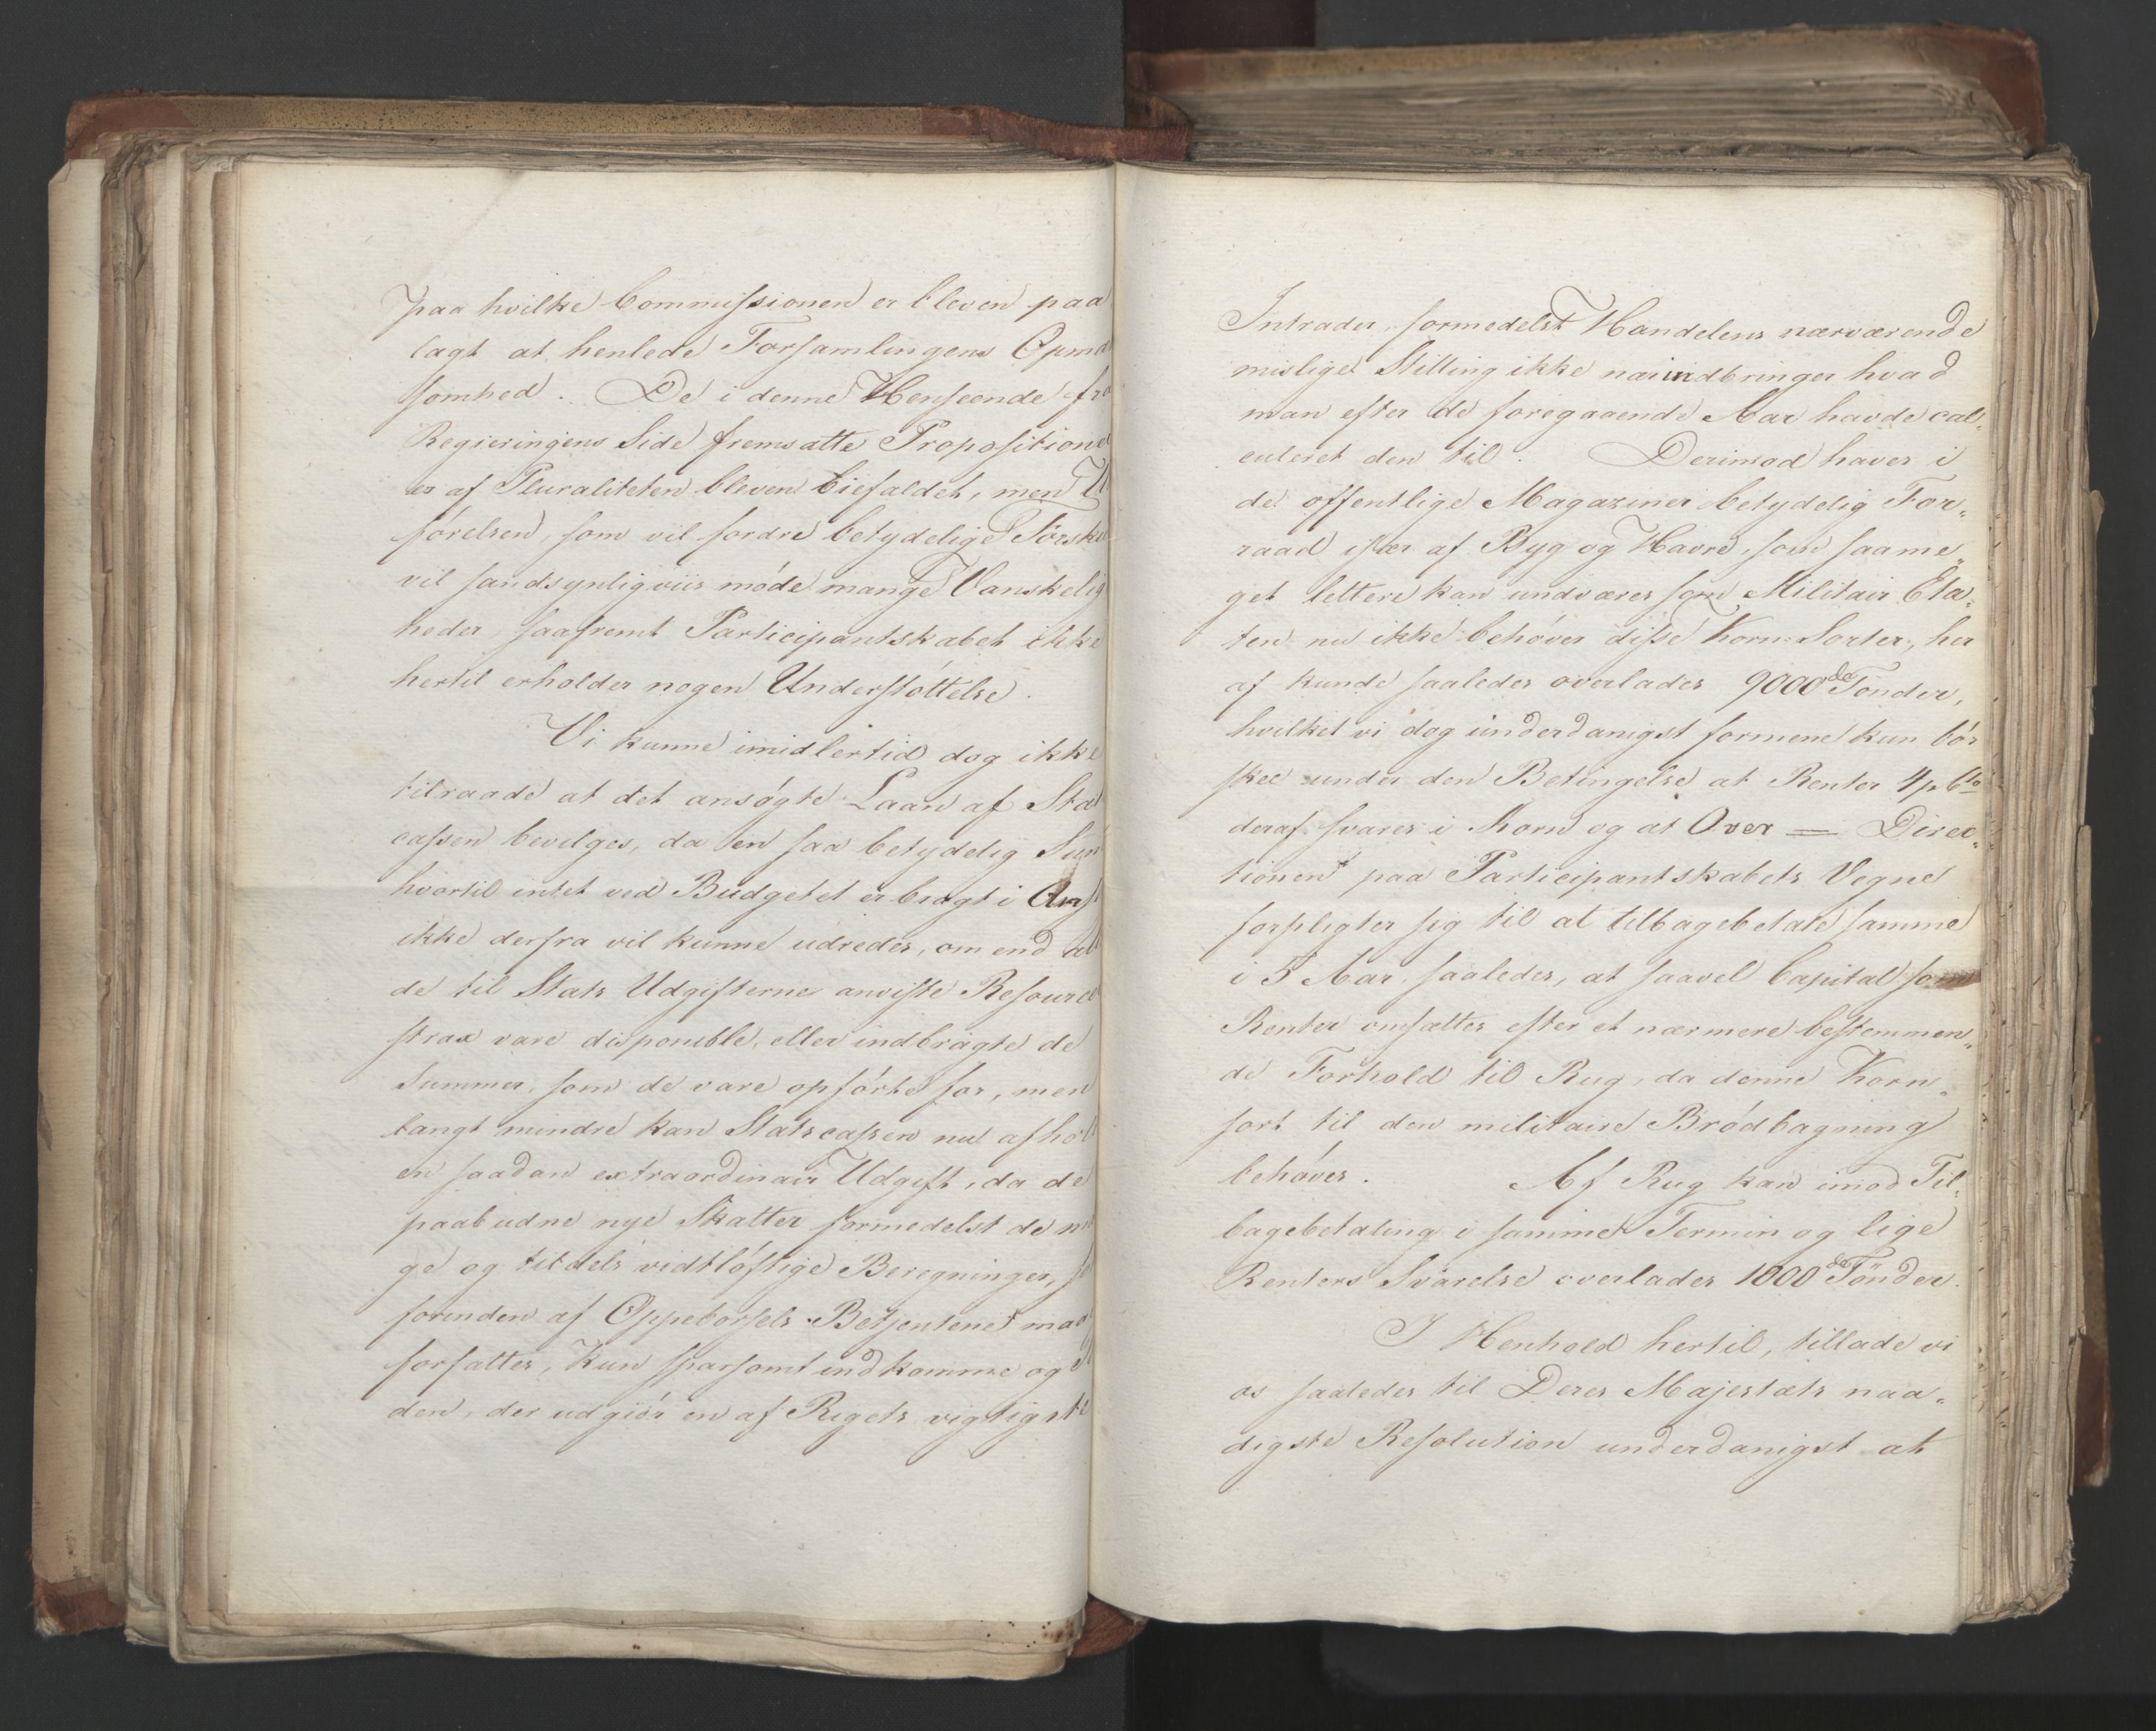 paa hvilke Commissionen er bleven paa
lagt at henlede Forsamlingens Opmæ
somhed. De i denne Henseende fra
Regjeringens Side fremsatte Propositione
er af Pluraliteten bleven biefaldet, men U
førelsen, som vil fordre betydelige Forsku
vil sandsynligviis møde mange Vanskelig
heder, saafremt Participantskabet ikke
hertil erholder nogen Understøttelse.
Vi kunne imidlertid dog ikke
tilraade at det ansøgte Laan af Stat
cassen bevilges, da en saa betydelig Sum
hvortil intet ved Budgetet er bragt i Ansl
ikke derfra vil kunne udredes, om end al
de til Stats Udgifterne anviste Resource
strax vare disponible, eller indbragte de
Summer, som de vare opførte for, men
langt mindre kan Statscassen nu afhol
en saadan extraordinair Udgift, da de
paabudne nye Skatter formedelst de ma
ge og tildels vidtløftige Beregninger, s
forinden af Oppeborsels-Betjentene maa
forfattes, kun sparsomt indkomme og
den, der udgiør en af Rigets vigtigste
Intrader, formedelst Handelens nærværende
mislige Stilling ikke nær indbringer hvad
man efter de foregaaende Aar havde cal„
culeret den til. Derimod haves i
de offentlige Magaziner betydelig For„
raad især af Byg og Havre, som saame„
get lettere kan undværes som Militair Eta„
ten nu ikke behøver disse Korn-Sorter, her
af kunde saaledes overlades 9000 de Tønder,
hvilket vi dog underdanigst formene kun bør
skee under den Betingelse at Renter 4 p Cto
deraf svares i Korn og at Over = Direc„
tionen paa Participantskabets Vegne
forpligter sig til at tilbagebetale samme
i 5 Aar saaledes, at saavel Capital som
Renter omsættes efter et nærmere bestemmen„
de Forhold til Rug, da denne Korn„
sort til den militaire Brødbagning
behøves. Af Rug kan imod Til„
bagebetaling i samme Termin og lige
Renters Svarelse overlades 1000 de Tønder.
I Henhold hertil, tillade vi
os saaledes til Deres Majestæts naa„
digste Resolution underdanigst at